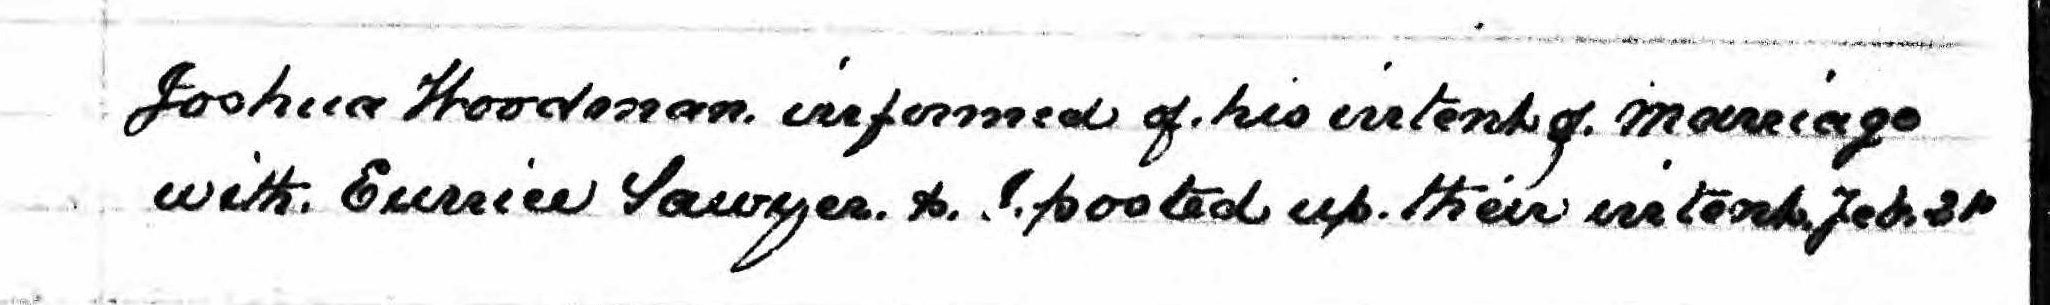 Joshua Woodman. informed of. his intent of. marriage
with. Eunice Sawyer. &. I. posted up. their intent. Feb.